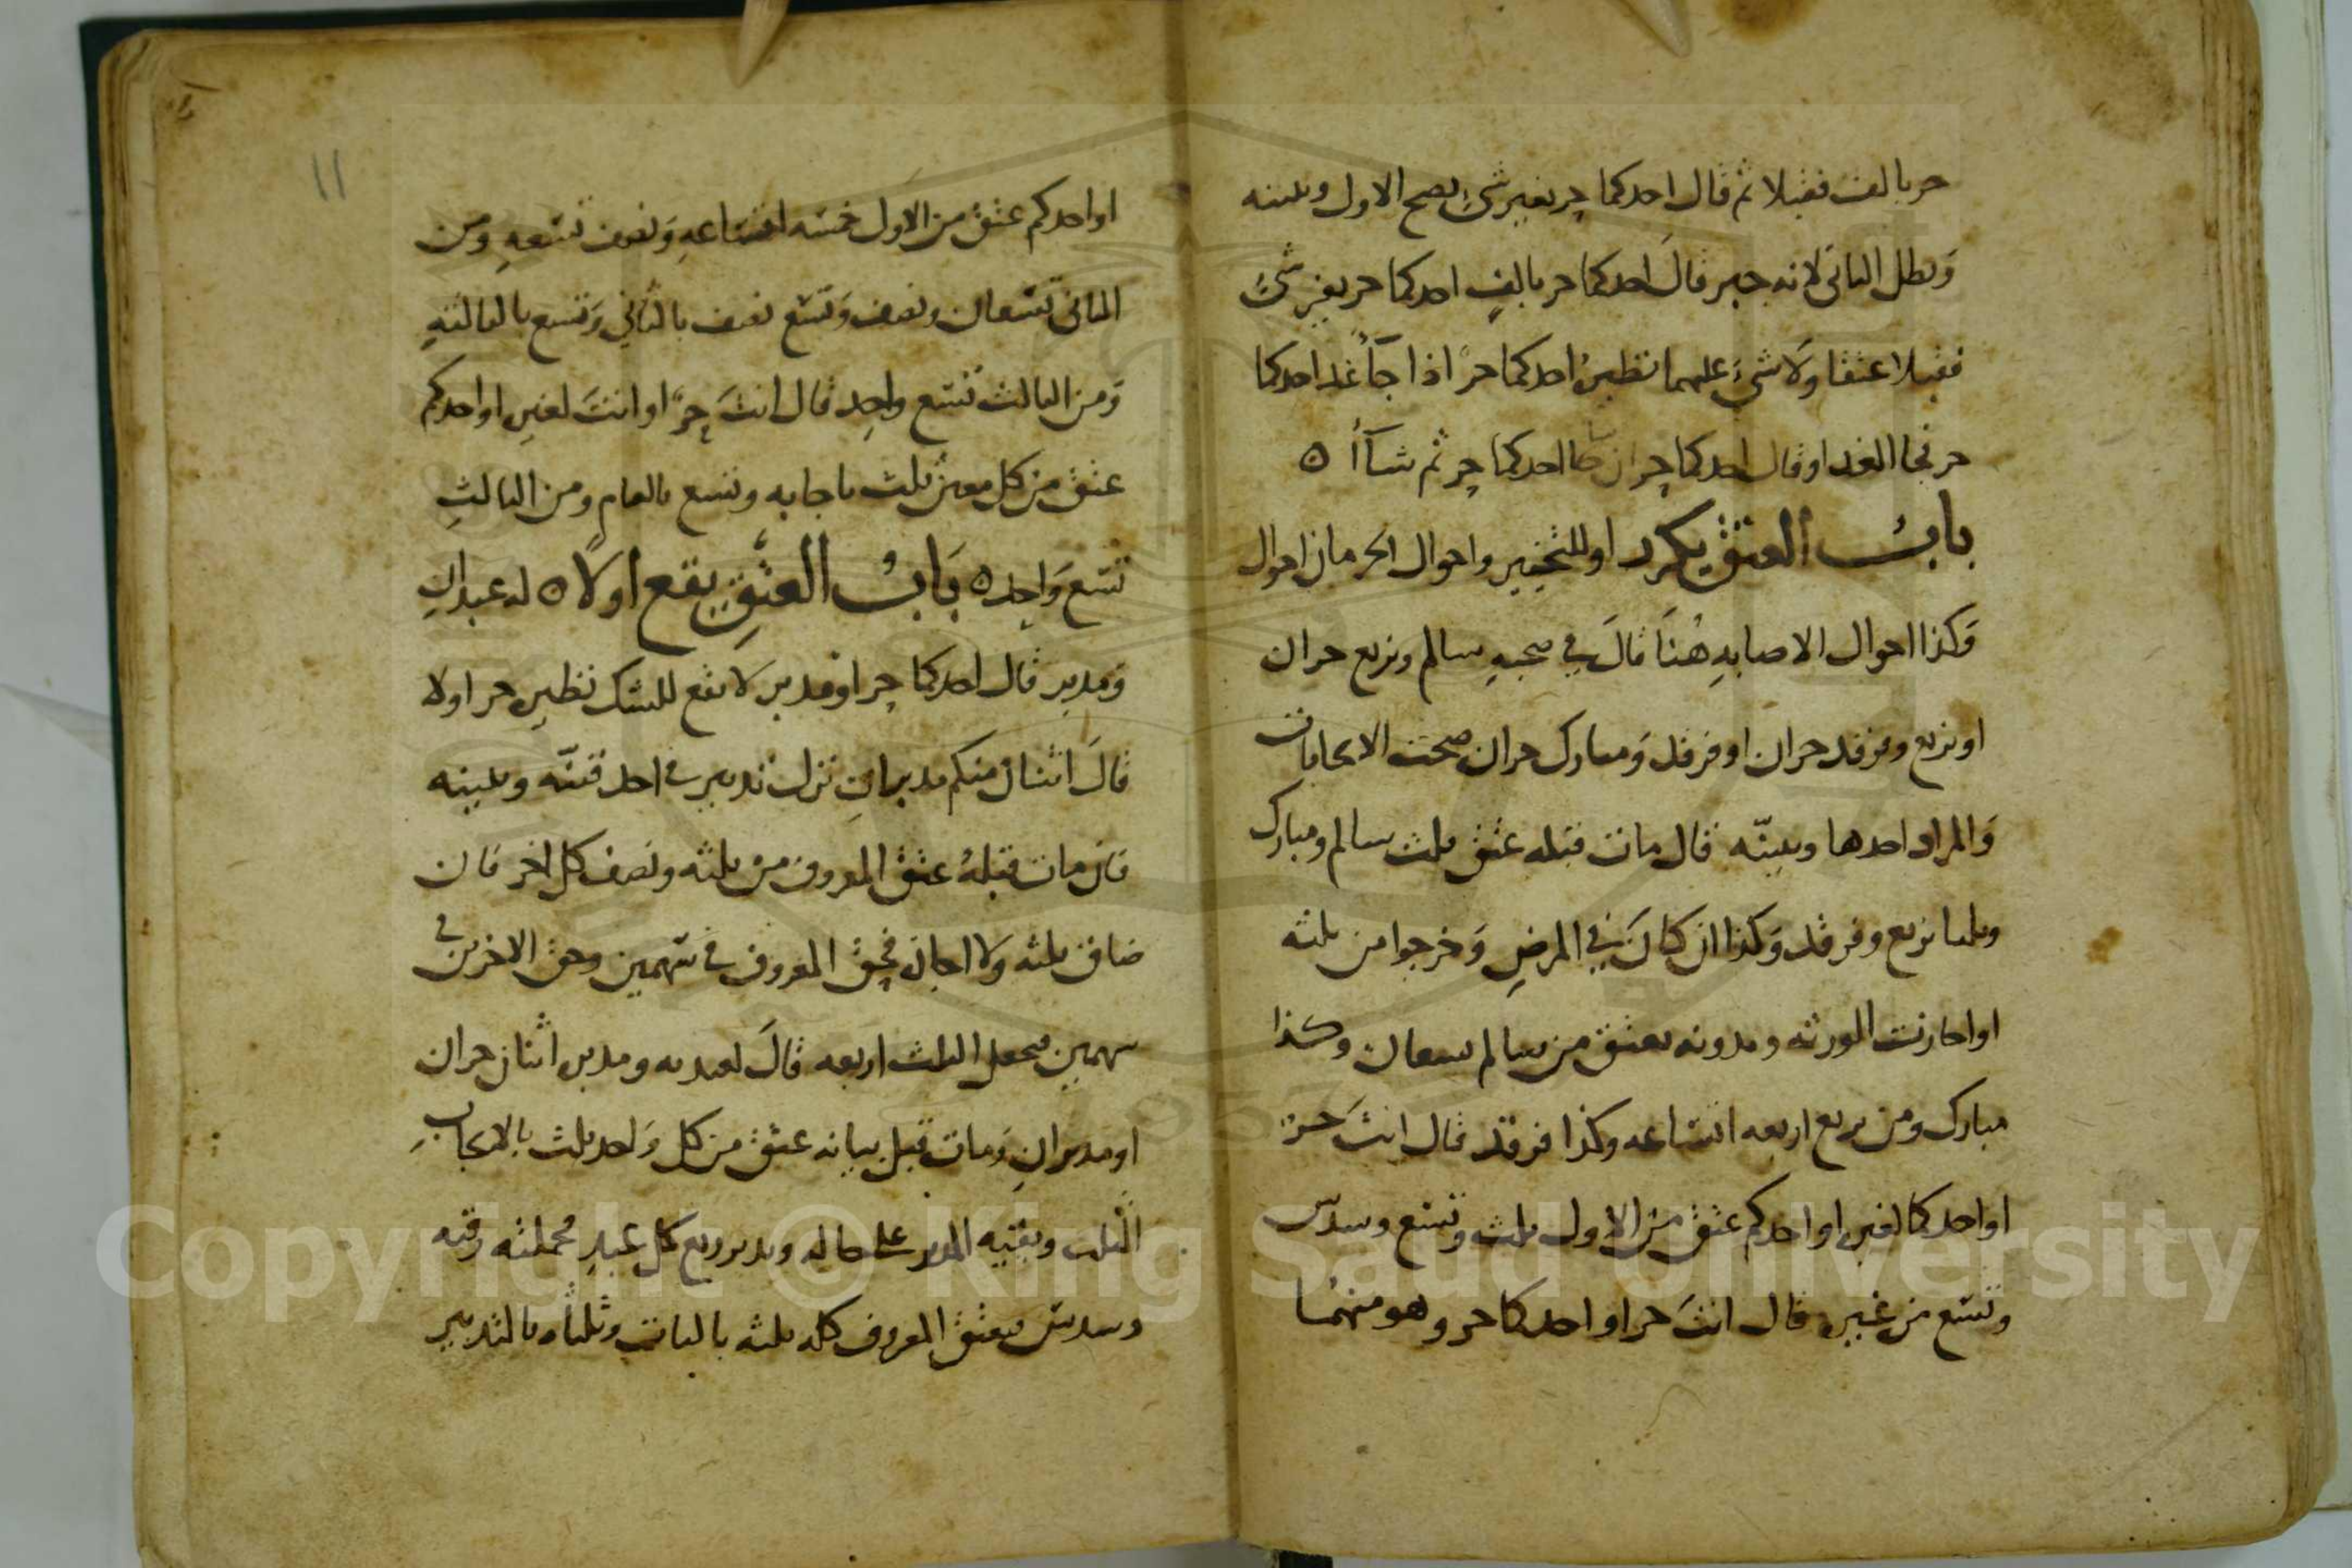 حر بالف فقبلا ثم قال احدكما حر بغير شئ يصح الاول ويلينه
وبطل الثاني لانه خبر قال احدكما حر بالف احدكما حر بغير شئ
فقبلا اعتقا ولا شئ عليهما نظيره احدكما حر اذا جآ غد احدكما
حر فجا الغد او قال احدكما حر ان شا احدكما حر ثم شاآ ٥
باب العتق يكرر او للتخيير واحوال الحرمان احوال
وكذا احوال الاصابه هنا قال في صحته سالم وبزيع حران
او بزيع وفرقد حران او فرقد ومبارك حران صحت الايجابات
والمراد احدها ويبينه قال مات قبله عتق ثلث سالم ومبارك
وثلثا بزيع وفرقد وكذا ان كان في المرض وخرجوا من ثلثه
او اجازت الورثه وبدونه يعتق من سالم سبعان وكذا
مبارك ومن بزيع اربعه اتساعه وكذا فرقد قال انت حر
او احدكما لغيره او احدكم عتق من الاول ثلث وتسع وسدس
وتسع من غيره قال انت حر او احدكما حر وهو منهما
١١
او احدكم عتق من الاول خمسه اتساعه ونصف تسعه ومن
الثاني تسعان ونصف وتسع نصف بالثاني وتسع بالثالثه
ومن الثالث تسع واحد قال انت حر او انت لغيره او احدكم
عتق من كل معين ثلث باجابه وتسع بالعام ومن الثالث
تسع واحد ٥ باب العتق يقع اولا ٥ له عبدان
ومدبر قال احدكما حر او مدبر لا يقع للشك نظيره حر اولا
قال اثنان منكم مدبران نزل تدبير في احد قنيه ويبينه
فان مات قبله عتق المعروف من ثلثه ونصف كل اخر فان
ضاق ثلثه ولا اجازه فحق المعروف في سهمين وحق الاخرين في
سهمين يجعل الثلث اربعه قال لعبديه ومدبره اثنان حران
او مدبران ومات قبل بيانه عتق من كل واحد ثلث بالايجاب
الثلث وبقيه المدبر على حاله ويدبر ربع كل عبد فجملته
وسدس يعتق المعروف كله ثلثه بالبات وثلثاه بالتدبير
Copyright © King Saud University